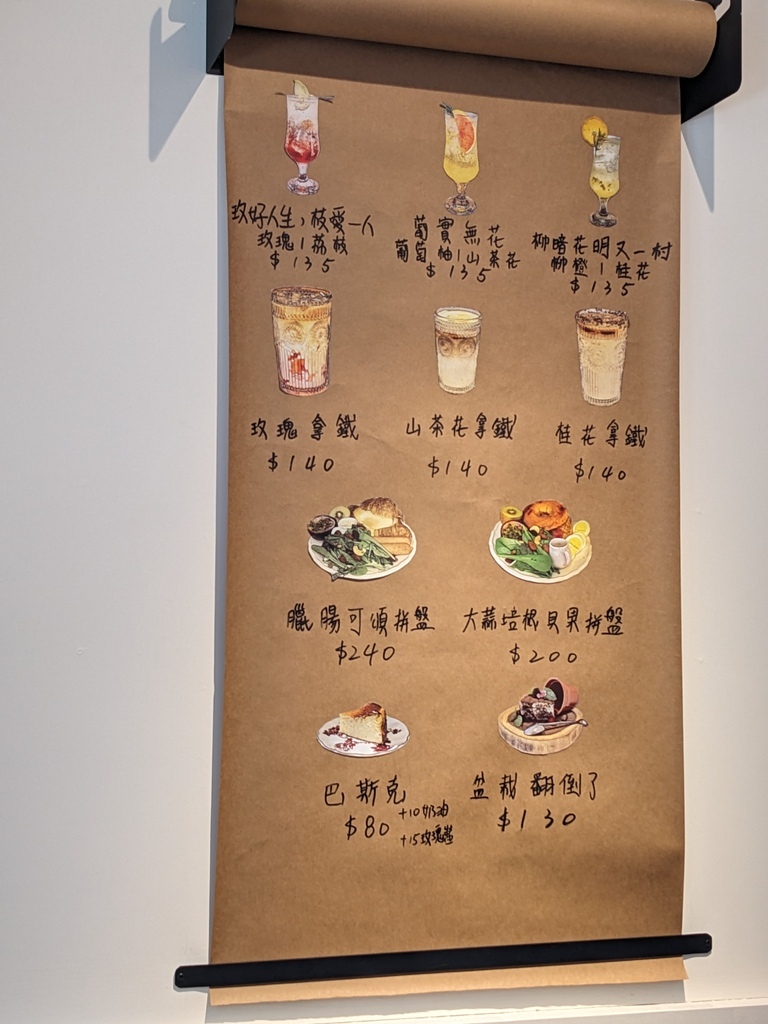 玫好人生,枝愛一人
玫瑰|荔枝
$135
葡實無花
葡萄柚|山茶花
$135
柳暗花明又一村
柳橙|桂花
$135
玫瑰拿鐵
$140
山茶花拿鐵
$140
桂花拿鐵
$140
臘腸可頌拼盤
$240
大蒜培根貝果拼盤
$200
巴斯克
$80
+10奶油
+15玫瑰醬
盆栽翻倒了
$130